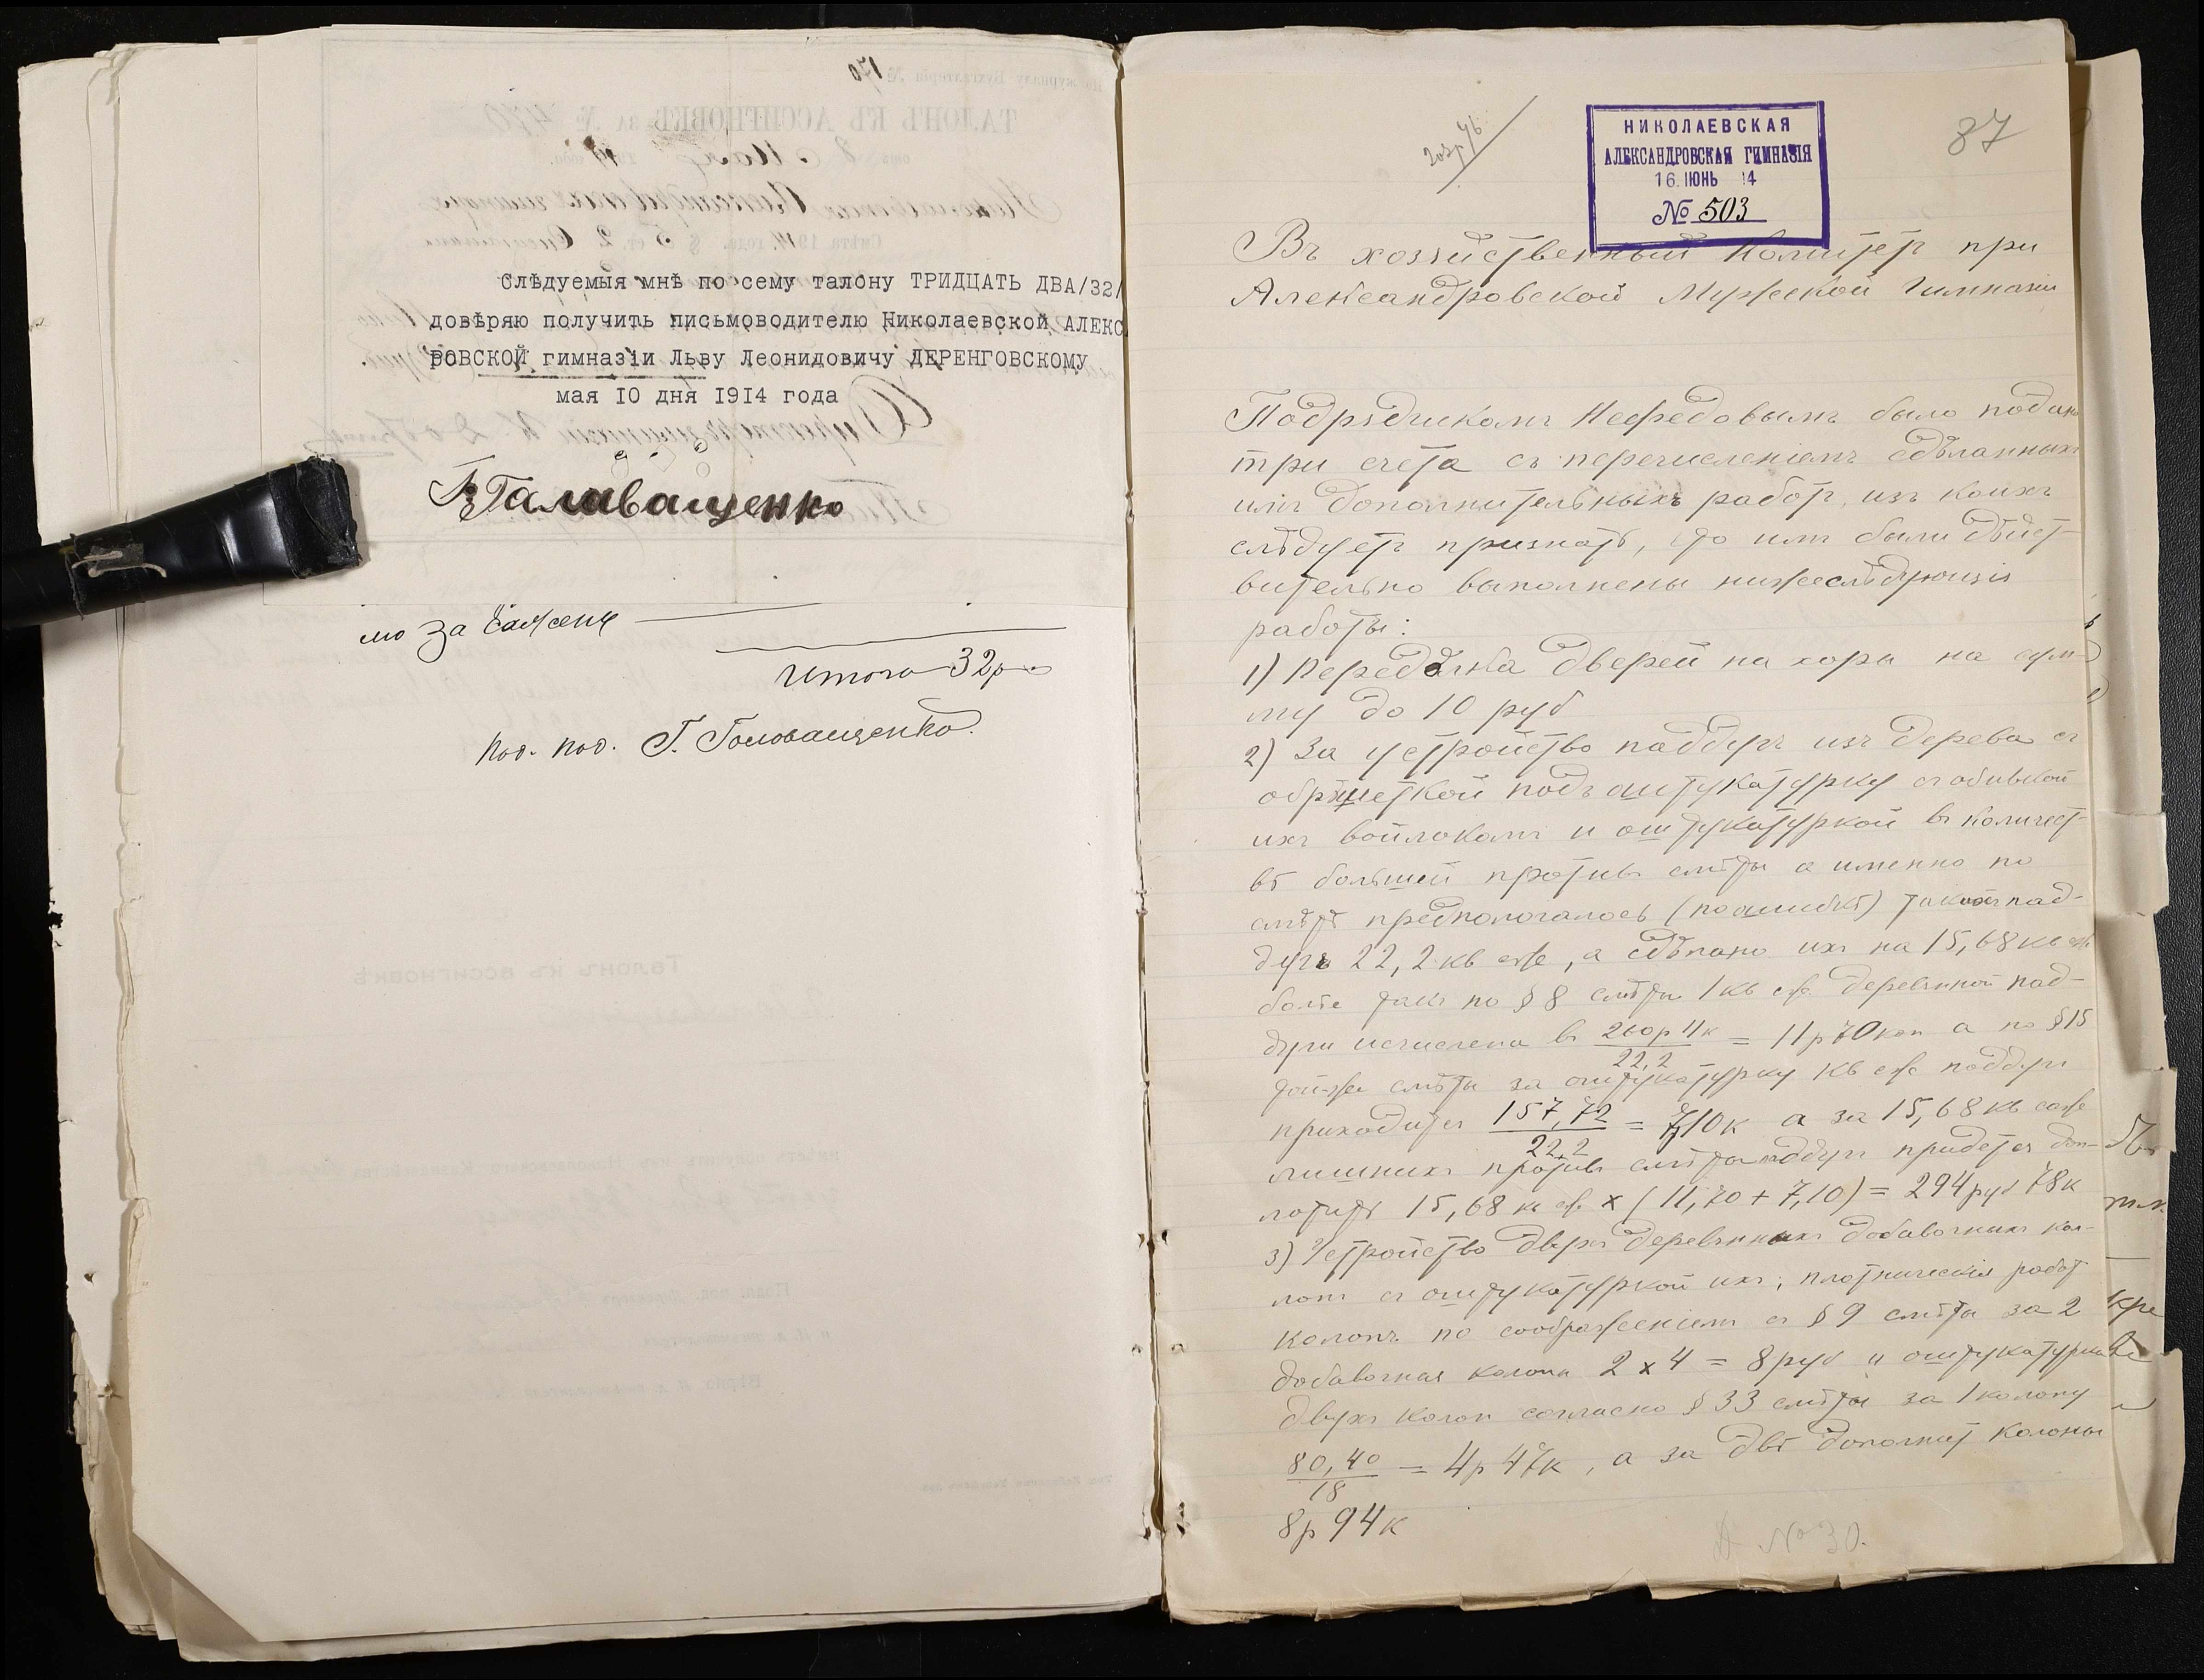 Слѣдуемыя мнѣ по сему талону ТРИДЦАТЬ ДВА/32/
довѣряю получить письмоводителю Николаевской АЛЕКС
РОВСКОЙ гимназіи Льву Леонидовичу ДЕРЕНГОВСКОМУ
мая 10 дня 1914 года
Г. Галаващенко
за сажень
Итого 32р
Под. под. Г. Головащенко.
87
НИКОЛАЕВСКАЯ
АЛЕКСАНДРОВСКАЯ ГИМНАЗІЯ
16. ІЮНЬ 14
№ 503
Въ хозяйственный Комитетъ при
Александровской Мужской Гимназіи
Подрядчикомъ Нефедовымъ было подан
три счета съ перечисленіемъ сдѣланныхъ
имъ дополнительныхъ работъ, изъ коихъ
слѣдуетъ признать, что имъ были дѣйст-
вительно выполнены нижеслѣдующія
работы:
1) Передѣлка дверей на хоры на сум-
му до 10 руб
2) За устройство паддугъ изъ дерева съ
обрѣшеткой подъ штукатурку съ обивкой
ихъ войлокомъ и оштукатуркой въ количест-
вѣ большей противъ смѣты а именно по
смѣтѣ предпологалось (по ошибкѣ) пад-
дугъ 22,2 кв саж, а сдѣлано ихъ на 15,68 кв саж
болѣе такъ по § 8 смѣты 1 кв саж. деревянной пад-
дуги исчислена въ 260р 11к/22,2 = 11р 70 коп а по § 15
той-же смѣты за оштукатурку кв саж паддуги
приходится 157,72/22,2 = 7р10к а за 15,68 кв саж
лишнихъ противъ смѣты паддугъ придется доп-
латить 15,68 к саж x (11,70 + 7,10) = 294 руб 78к
3) Устройство двухъ деревянныхъ добавочныхъ кол-
лонъ съ оштукатуркой ихъ; плотническія работ
колонъ по соображеніямъ съ § 9 смѣты за 2
добавочныя колоны 2 x 4 = 8 руб и оштукатурка
двухъ колон согласно § 33 смѣты за 1 колону
80,40/18 = 4р 47к, а за двѣ дополнит колоны
8р 94к
№ 30.